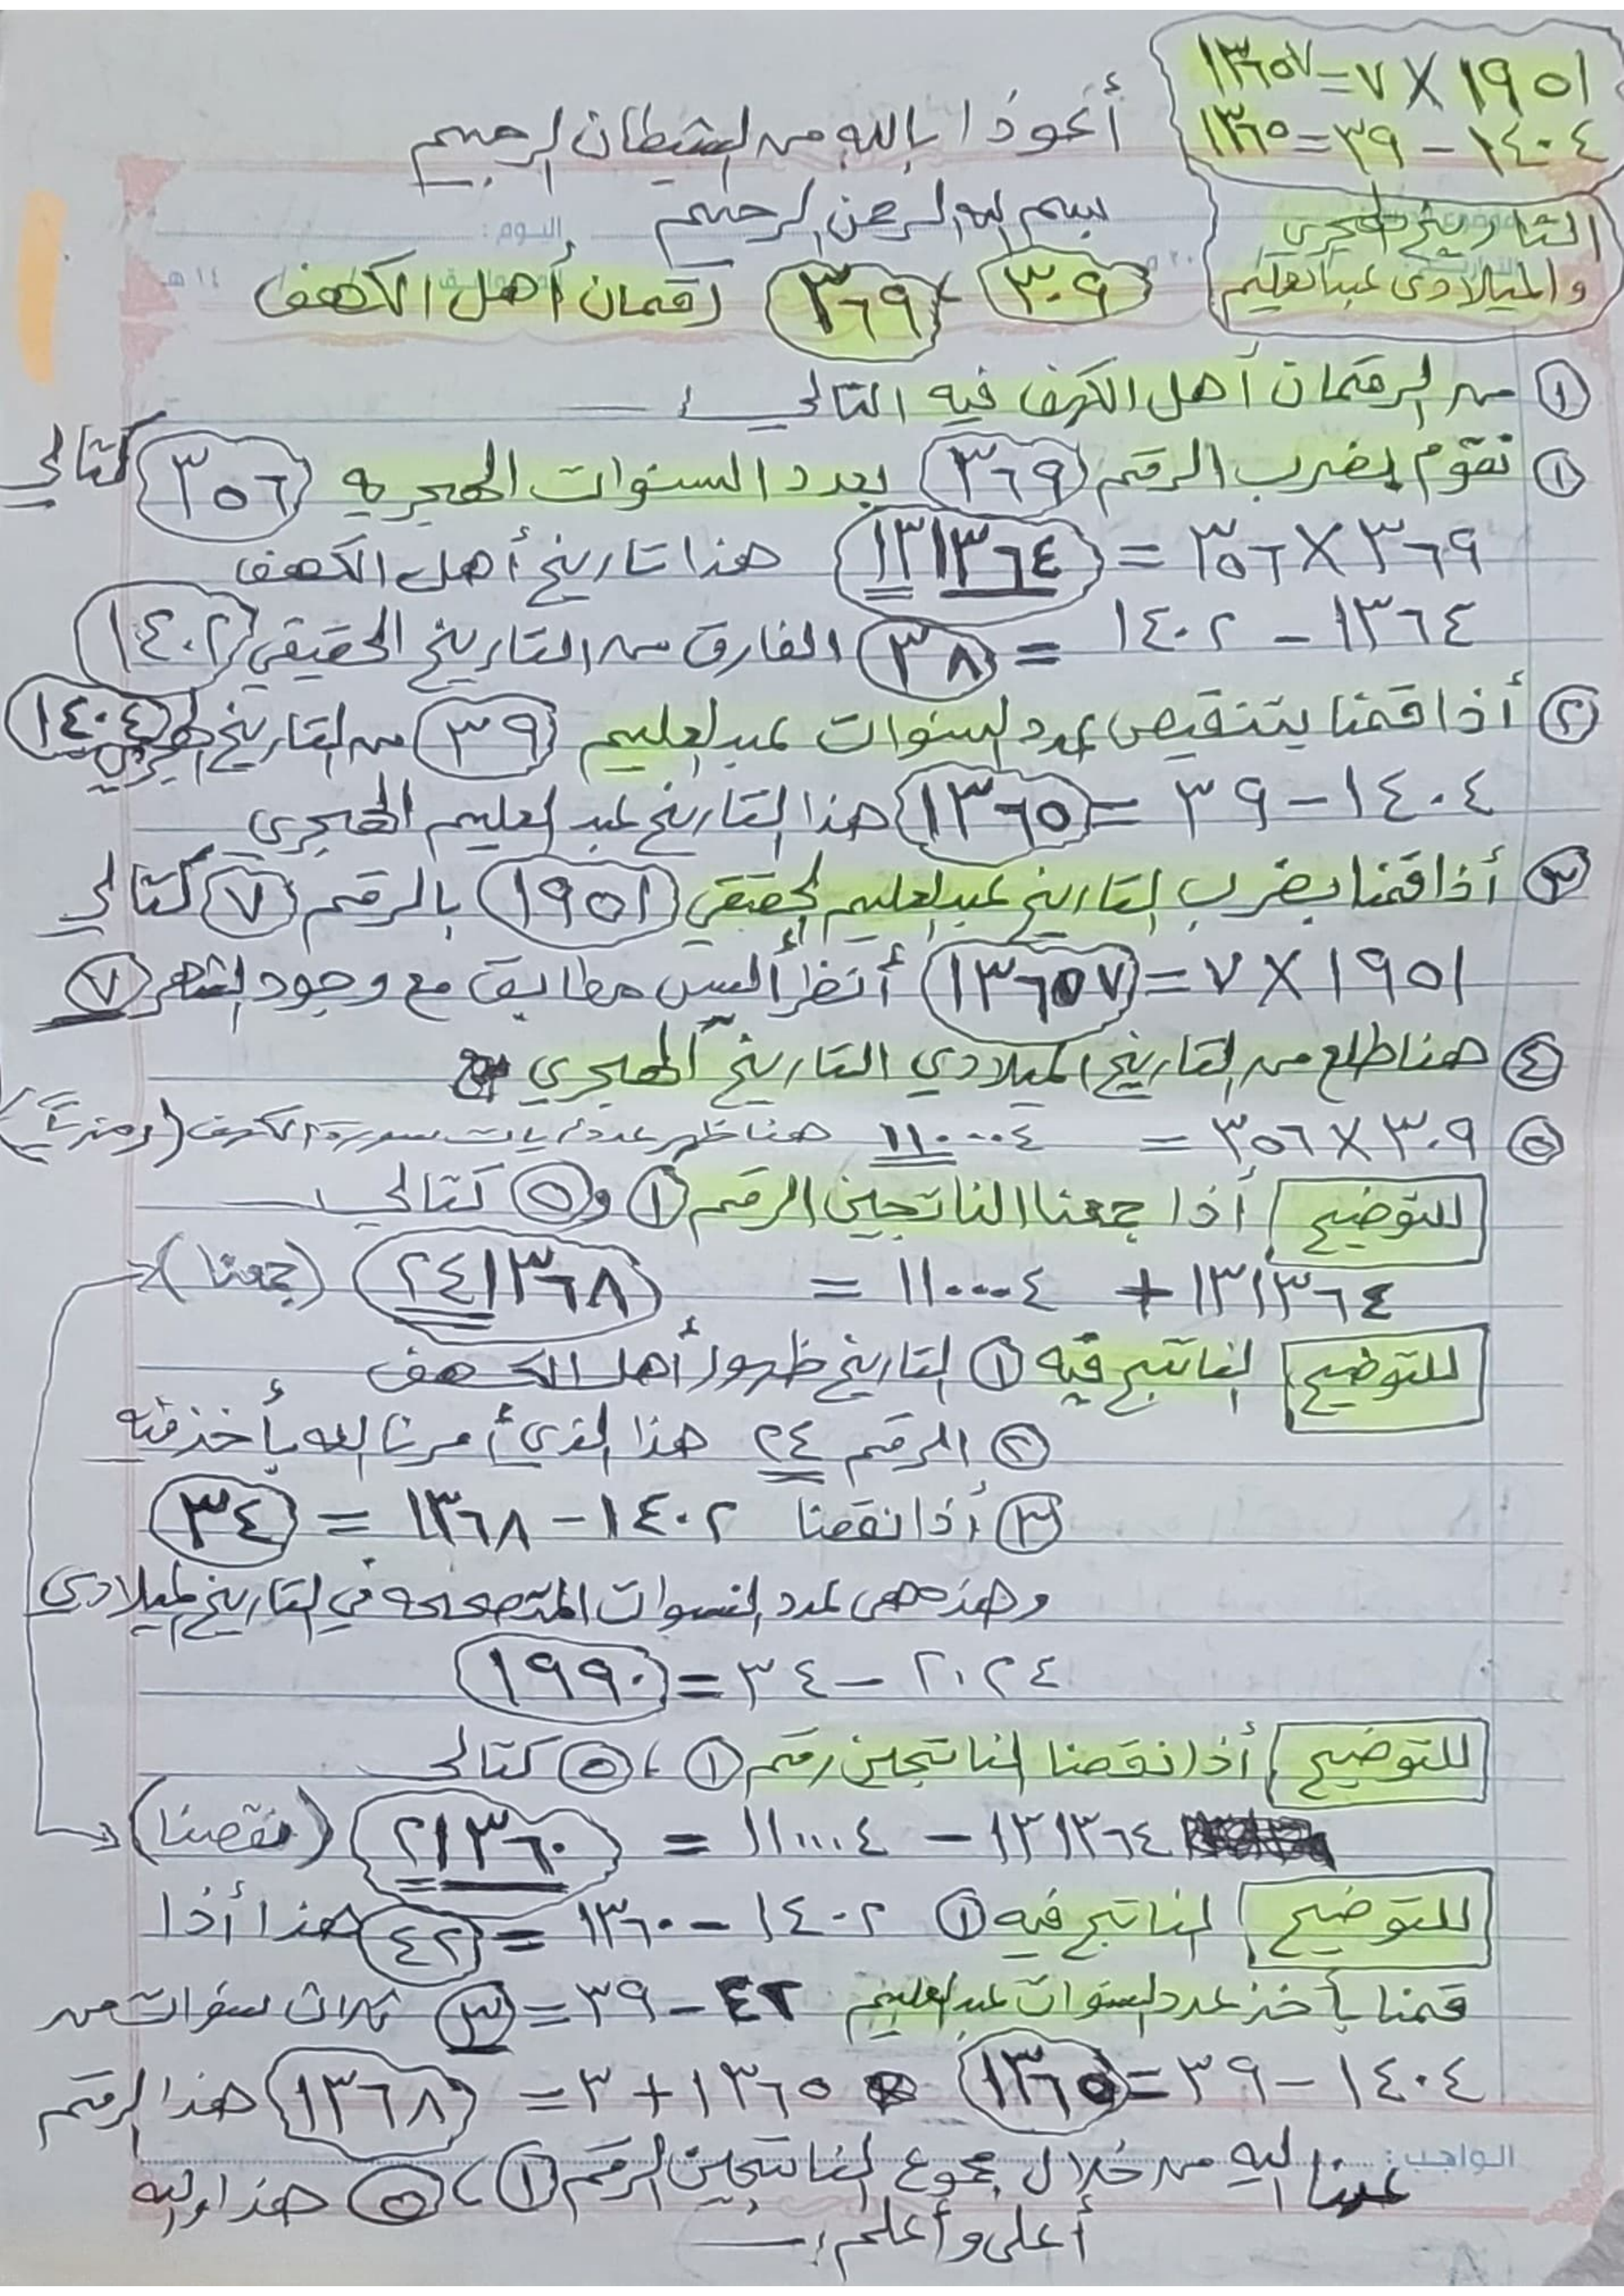 ١٩٥١ × ٧ = ١٣٦٥٧
١٤٠٤ - ٣٩ = ١٣٦٥
أعوذا بالله من الشيطان الرجيم
بسم الله الرحمن الرحيم
التاريخ الهجري
والميلادى عبدالعليم
اليوم :
١٤ هـ
٣٠٩ - ٣٦٩ رقمان أهل الكهف
① من الرقمان أهل الكهف فيه التالي :
① نقوم بضرب الرقم ٣٦٩ بعدد السنوات الهجريه ٣٥٦ كتالي
٣٦٩ × ٣٥٦ = ١٣١٣٦٤ هذا تاريخ أهل الكهف
١٣٦٤ - ١٤٠٢ = ٣٨ الفارق من التاريخ الحقيقي ١٤٠٢
② أذا قمنا بتنقيص عدد السنوات عبد العليم ٣٩ من التاريخ الهجري ١٤٠٤
١٤٠٤ - ٣٩ = ١٣٦٥ هذا التاريخ عبد العليم الهجرى
③ أذا قمنا بضرب التاريخ عبد العليم الحقيقي ١٩٥١ بالرقم ٧ كتالي
١٩٥١ × ٧ = ١٣٦٥٧ أنظر أليس مطابق مع وجود الشهر ٧
④ هنا طلع من التاريخ الميلادي التاريخ الهجري
⑤ ٣٠٩ × ٣٥٦ = ١١٠٠٠٤ هنا ظهر عدد أيات سورة الكهف
للتوضيح أذا جمعنا الناتجين الرقم ① و ⑤ كتالي
١٣١٣٦٤ + ١١٠٠٠٤ = ٢٤١٣٦٨ (جمعنا)
للتوضيح الناتج فيه ① التاريخ ظهور أهل الكهف
② الرقم ٢٤ هذا الذي أمرنا الله بأخذ منه
③ أذا نقصنا ١٤٠٢ - ١٣٦٨ = ٣٤
وهذه هى عدد السنوات المتصححه في التاريخ الميلادى
٢٠٢٤ - ٣٤ = ١٩٩٠
للتوضيح أذا نقصنا الناتجين رقم ① ، ⑤ كتالى
١٣١٣٦٤ - ١١٠٠٠٤ = ٢١٣٦٠ (نقصنا)
للتوضيح الناتج فيه ① ١٤٠٢ - ١٣٦٠ = ٤٢ هذا أذا
قمنا بأخذ عدد السنوات عبد العليم ٤٢ - ٣٩ = ③ ثلاث سنوات من
١٤٠٤ - ٣٩ = ١٣٦٥ ١٣٦٥ + ٣ = ١٣٦٨ هذا الرقم
الواجب :
اليه من خلال مجموع الناتجين الرقم ① ، ⑤ هذا والله
أعلى وأعلم :